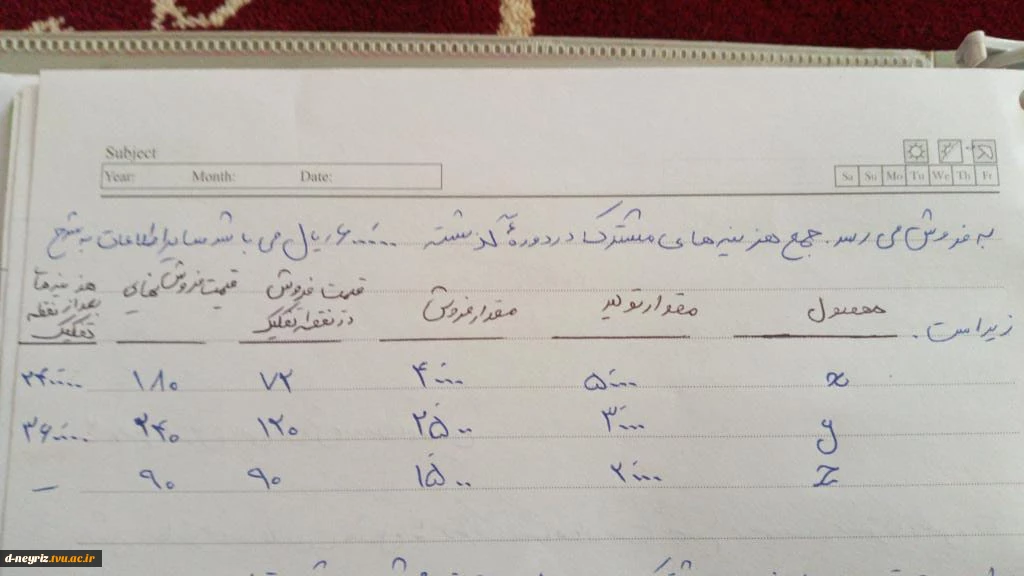 Subject
Year: Month: Date:
Sa Su Mo Tu We Th Fr
به فروش می رسد. جمع هزینه های مشترک در دورهٔ گذشته ۶۰۰۰۰۰ ریال می باشد سایر اطلاعات به شرح
زیر است.
محصول مقدار تولید مقدار فروش قیمت فروش در نقطه تفکیک قیمت فروش نهایی هزینه ها بعد از نقطه تفکیک
x ۵۰۰۰ ۴۰۰۰ ۷۲ ۱۸۰
y ۳۰۰۰ ۲۵۰۰ ۱۲۰ ۲۴۰
z ۲۰۰۰ ۱۵۰۰ ۹۰ ۹۰ –
d-neyriz.tvu.ac.ir